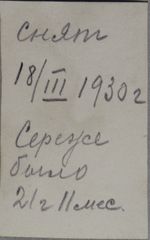 снят
18/III 1930 г
Сереже
было
2 1/2 г 11 мес.